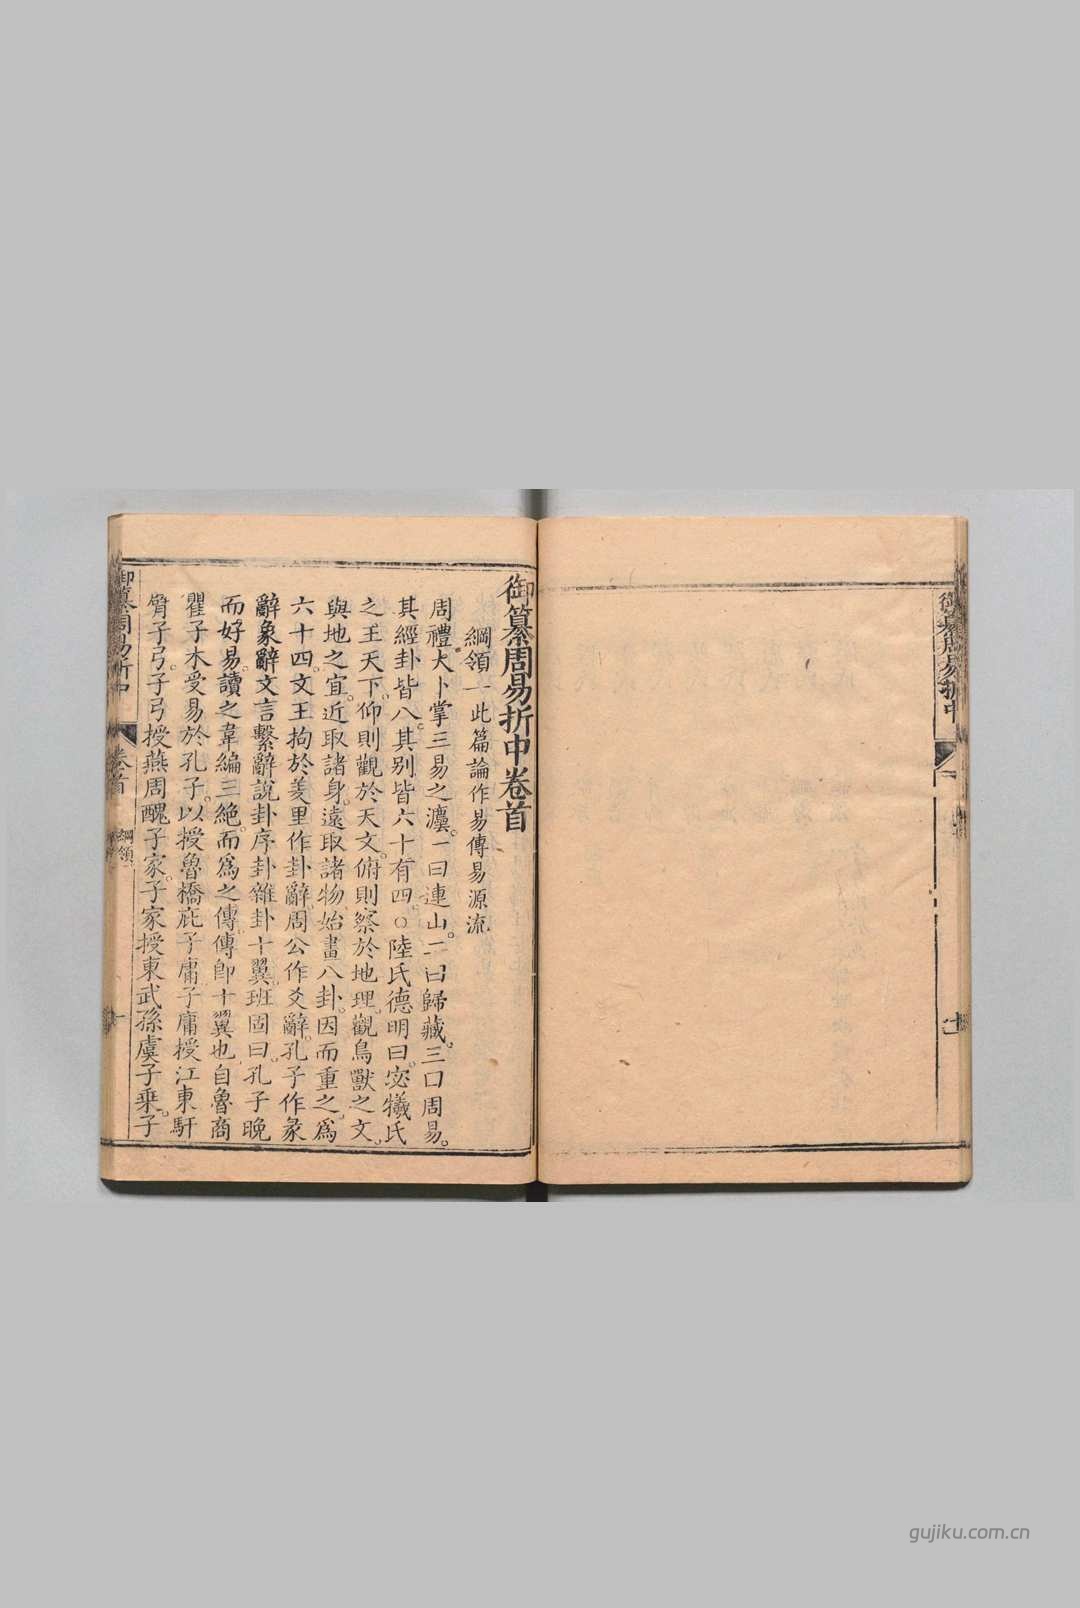 御纂周易折中
御纂周易折中卷首
綱領一此篇論作易傳易源流
周禮大卜掌三易之灋。一曰連山。二曰歸藏。三曰周易。
其經卦皆八。其别皆六十有四。○陸氏德明曰。宓犧氏
之王天下。仰則觀於天文。俯則察於地理。觀鳥獸之文。
與地之宜。近取諸身。遠取諸物。始畫八卦。因而重之。爲
六十四。文王拘於羑里作卦辭。周公作爻辭。孔子作彖
辭象辭文言繫辭說卦序卦雜卦十翼。班固曰。孔子晚
而好易。讀之韋編三絕。而爲之傳。傳即十翼也。自魯商
瞿子木受易於孔子。以授魯橋庇子庸。子庸授江東馯
臂子弓。子弓授燕周醜子家。子家授東武孫虞子乗。子
御纂周易折中
卷首
綱領一
一
gujiku.com.cn